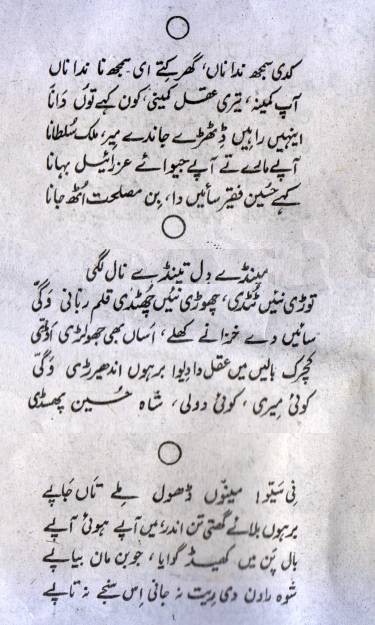 کدی سمجھ ندانا ں، گھر کِتھے ای سمجھ نا ندانا ں
آپ کمینہ، تیری عقل کمینی، کون کہے توُں دَانا
اینہیں راہیں ڈِٹھڑے جاندے مِیر، ملک سُلطانا
آپے مارے تے آپے جیوائے عزرائیل بہانا
کہے حُسین فقیر سائیں دا، بِن مصلحت اُٹھ جانا
مینڈے دِل تینڈے نال لگی
توڑی نئیں ٹُٹدی، چھوڑی نئیں چھُٹدی قلم ربّانی وَگّی
سائیں دے خزانے کھلے، اَساں بھی جھولڑی اَڈّی
کچرک بالیں میں عقل دا دیوا برہوں اندھیرڑی وَگّی
کوئی مِیری، کوئی دولی، شاہ حُسین پھسڈی
نی سَیّو! مینوں ڈھول مِلے تاں جاپے
برہوں بلائے گھتّی تن اندر، میں آپے ہوئی آپے
بال پَن میں کھیڈ گوایا، جوبن مان بیاپے
شوہ راون دی رِیت نہ جانی اِس سنجے نہ تاپے